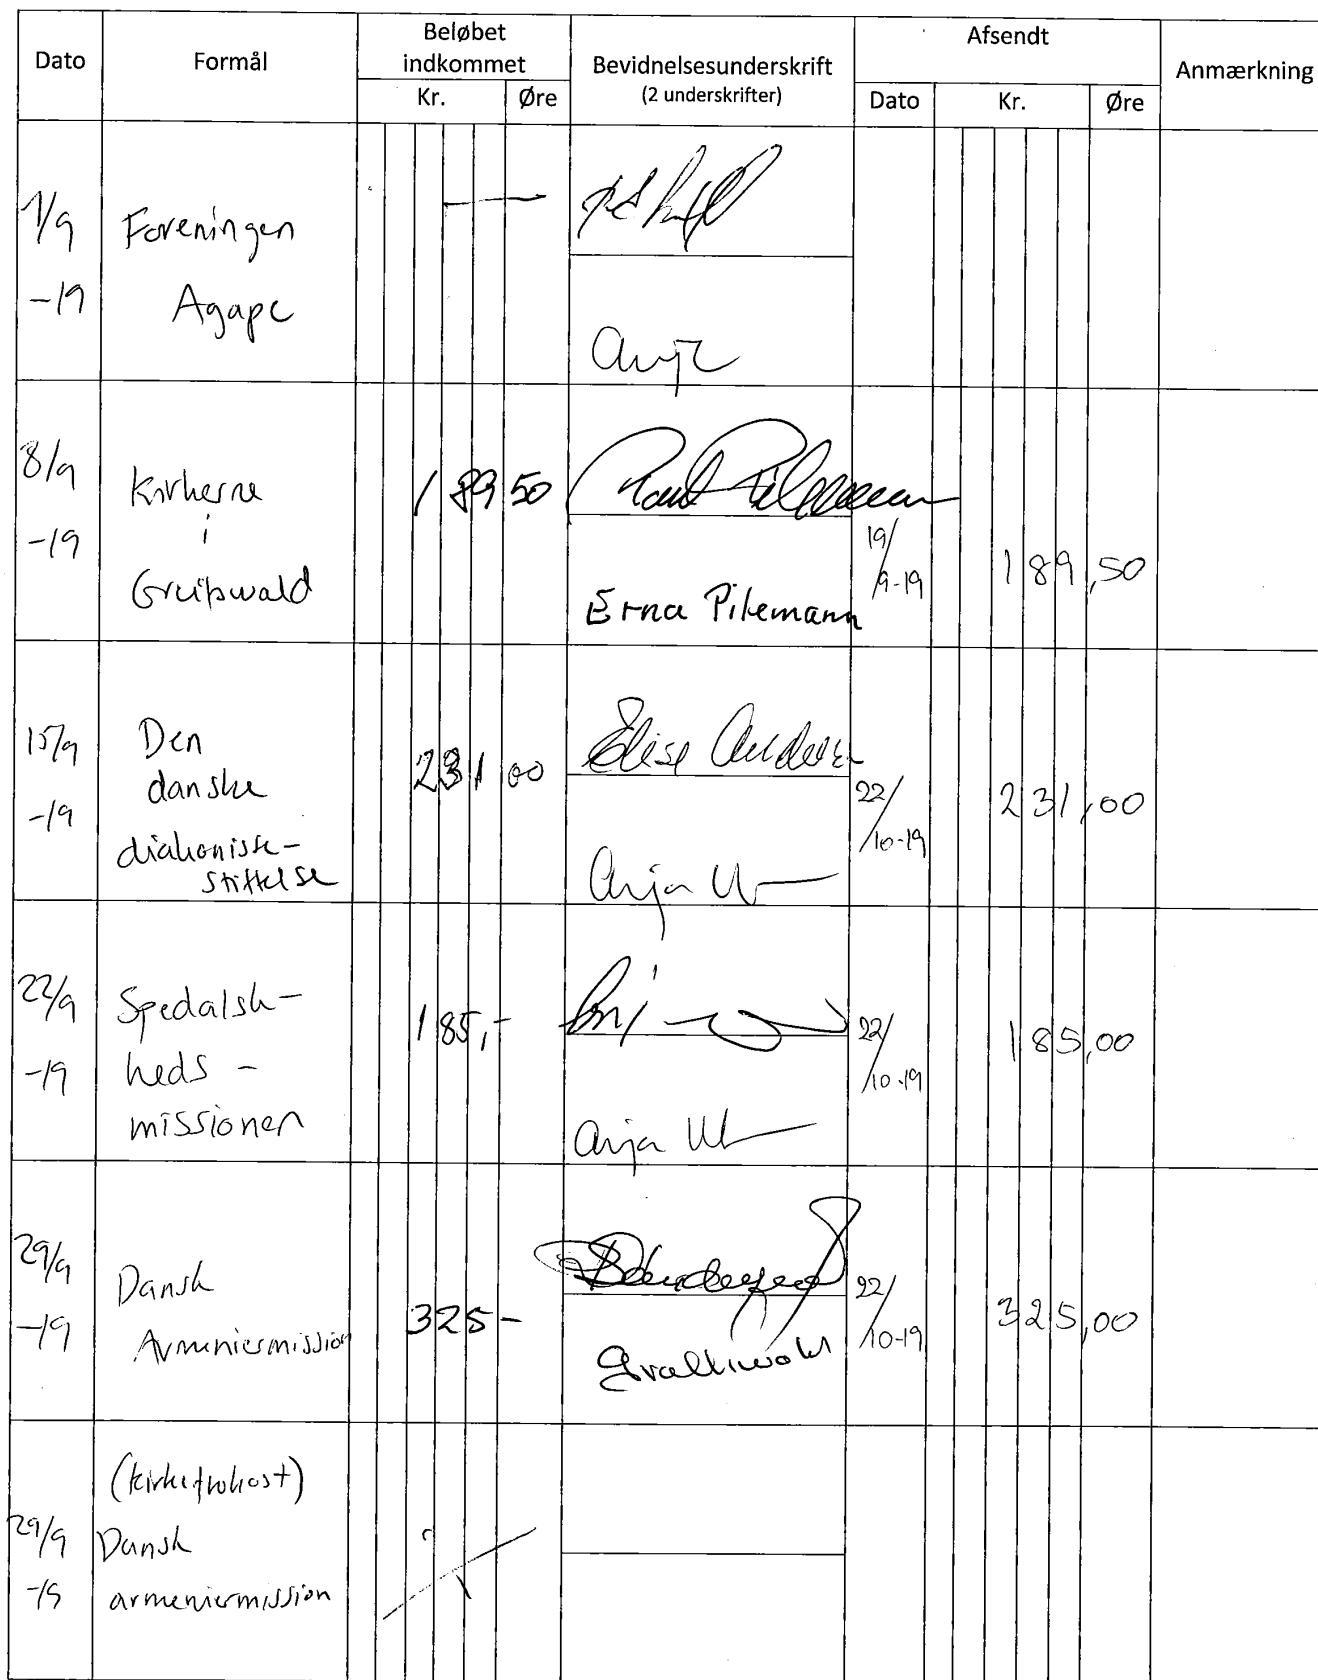 Dato Formål Beløbet indkommet Bevidnelsesunderskrift (2 underskrifter) Afsendt Anmærkning
Kr. Øre Dato Kr. Øre
1/9 -19
Foreningen
Agape
—
8/9 -19
Kirkerne
i
Greifswald
189 50
Erna Pilemann
19/9-19
189,50
15/9 -19
Den
danske
diakonisse-
stiftelse
231 00
Elise
Anja
22/10-19
231,00
22/9 -19
Spedalsk-
heds -
missionen
185,-
Anja
22/10-19
185,00
29/9 -19
Dansk
Armeniermission
325 -
22/10-19
325,00
29/9 -19
(kirkefrokost)
Dansk
armeniermission